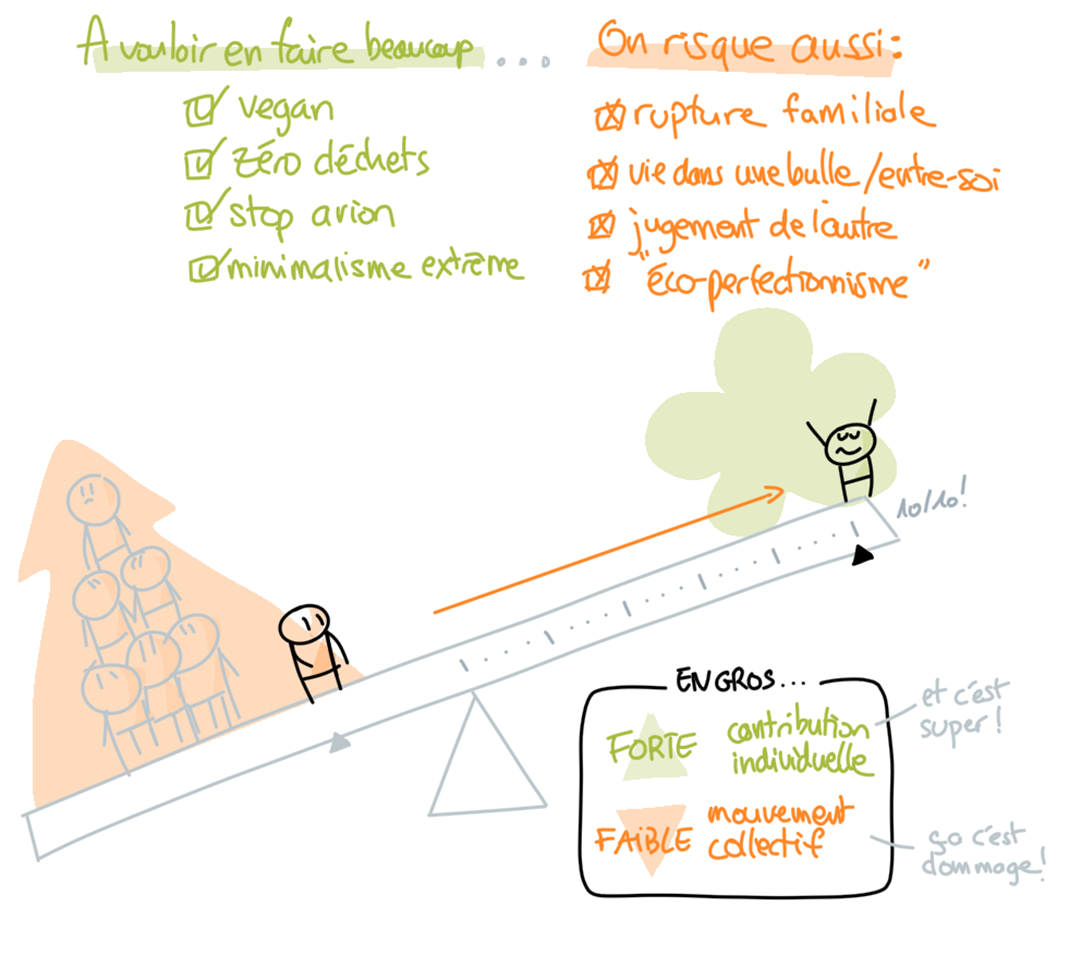 A vouloir en faire beaucoup ...
vegan
zéro déchets
stop avion
minimalisme extrême
On risque aussi:
rupture familiale
vie dans une bulle/entre-soi
jugement de l'autre
"éco-perfectionnisme"
10/10!
EN GROS...
FORTE
contribution
individuelle
et c'est
super!
FAiBLE
mouvement
collectif
ça c'est
dommage!